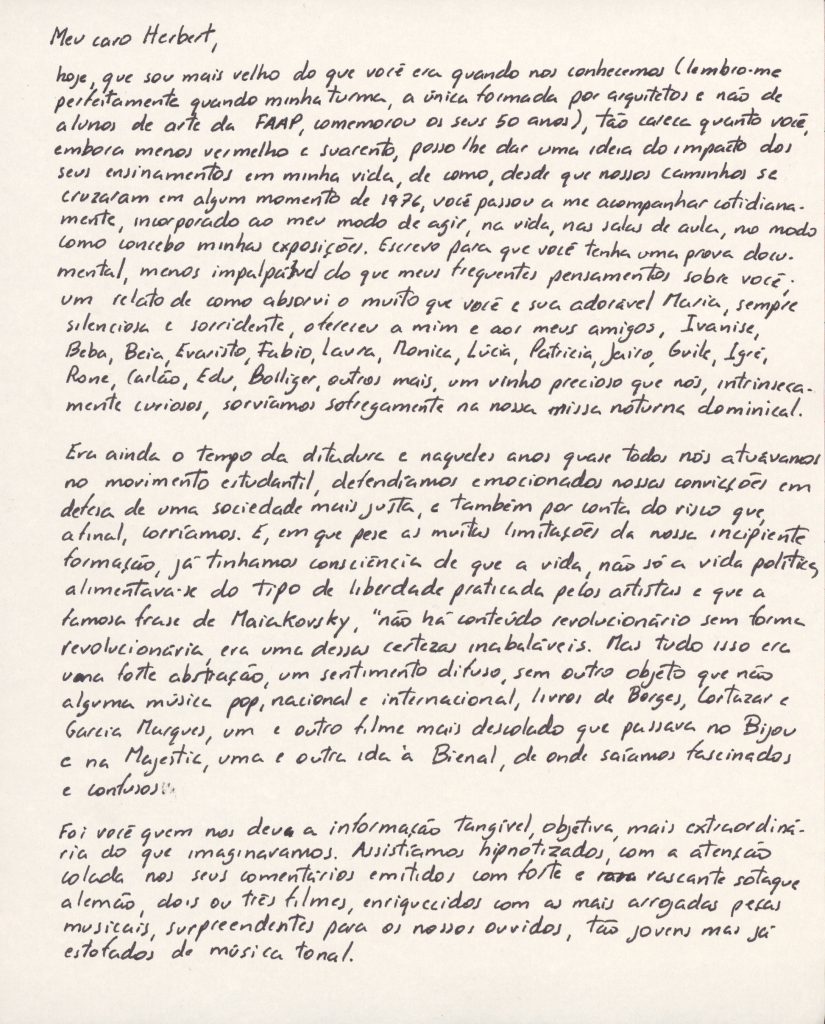 Meu caro Herbert,
hoje, que sou mais velho do que você era quando nos conhecemos (lembro-me
perfeitamente quando minha turma, a única formada por arquitetos e não de
alunos de arte da FAAP, comemorou os seus 50 anos), tão careca quanto você,
embora menos vermelho e suarento, posso lhe dar uma ideia do impacto dos
seus ensinamentos em minha vida, de como, desde que nossos caminhos se
cruzaram em algum momento de 1976, você passou a me acompanhar cotidiana-
mente, incorporado ao meu modo de agir, na vida, nas salas de aula, no modo
como concebo minhas exposições. Escrevo para que você tenha uma prova docu-
mental, menos impalpável do que meus frequentes pensamentos sobre você.
um relato de como absorvi o muito que você e sua adorável Maria, sempre
silenciosa e sorridente, ofereceu a mim e aos meus amigos, Ivanise,
Beba, Beia, Evaristo, Fabio, Laura, Monica, Lúcia, Patricia, Jairo, Guile, Igré,
Rone, Carlão, Edu, Bolliger, outros mais, um vinho precioso que nós, intrinseca-
mente curiosos, sorvíamos sofregamente na nossa missa noturna dominical.

Era ainda o tempo da ditadura e naqueles anos quase todos nós atuávamos
no movimento estudantil, defendíamos emocionados nossas convicções em
defesa de uma sociedade mais justa, e também por conta do risco que,
afinal, corríamos. E, em que pese as muitas limitações da nossa incipiente
formação, já tinhamos consciência de que a vida, não só a vida política,
alimentava-se do tipo de liberdade praticada pelos artistas e que a
famosa frase de Maiakovsky, "não há conteúdo revolucionário sem forma
revolucionária, era uma dessas certezas inabaláveis. Mas tudo isso era
uma forte abstração, um sentimento difuso, sem outro objeto que não
alguma música pop, nacional e internacional, livros de Borges, Cortazar e
Garcia Marques, um e outro filme mais descolado que passava no Bijou
e na Majestic, uma e outra ida à Bienal, de onde saíamos fascinados
e confusos

Foi você quem nos deu a informação tangível, objetiva, mais extraordiná-
ria do que imaginavamos. Assistíamos hipnotizados, com a atenção
colada nos seus comentários emitidos com forte e rascante sotaque
alemão, dois ou três filmes, enriquecidos com as mais arrojadas peças
musicais, surpreendentes para os nossos ouvidos, tão jovens mas já
estofados de música tonal.